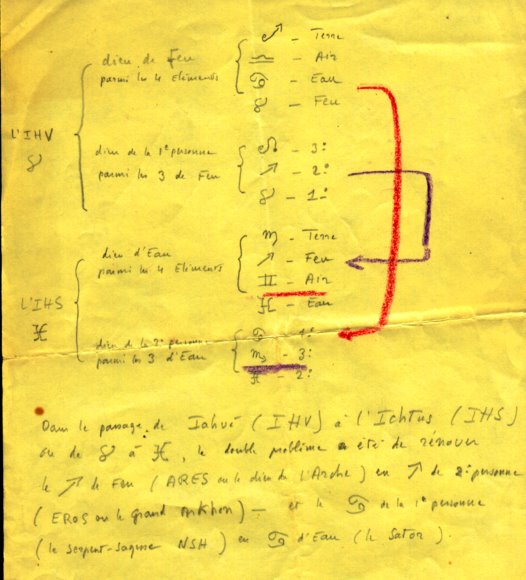 dieu de Feu
parmi les 4 Eléments
– Terre
♎ – Air
♋ – Eau
♈ – Feu
L'IHV
♈
dieu de la 1º personne
parmi les 3 de Feu
♌ – 3º
♐ – 2º
♈ – 1º
dieu d'Eau
parmi les 4 Eléments
♍ – Terre
♐ – Feu
♊ – Air
♓ – Eau
L'IHS
♓
dieu de la 2º personne
parmi les 3 d'Eau
♋ – 1º
♏ – 3º
♓ – 2º
Dans le passage de Iahvé (IHV) à l'Ichtus (IHS)
ou de ♈ à ♓, le double problème a été de rénover
le ♐ de Feu (ARES ou le dieu de l'Arche) en ♐ de 2º personne
(EROS ou le Grand) — et le ♋ de la 1º personne
(le serpent-sagesse NSH) en ♋ d'Eau (le Sator).